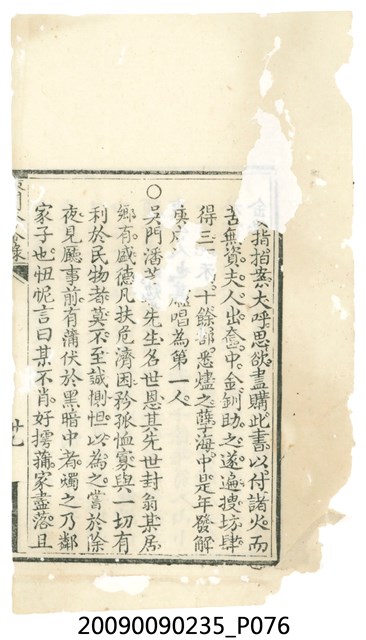 指指案大呼思欲盡購此書以付諸火而
苦無資夫人出奩中金釧助之遂遍搜坊肆
得三 十餘部悉燼之孽海中是年發解
唱為第一人
○
吳門潘芝 先生名世恩其先世封翁某居
鄉有盛德凡扶危濟困矜孤恤寡與一切有
利於民物者莫不至誠惻怛以為之嘗於除
夜見廳事前有蒲伏於黑暗中者燭之乃鄰
家子也忸怩言曰某不肖好摴蒱家盡落且
廿九
20090090235_P076